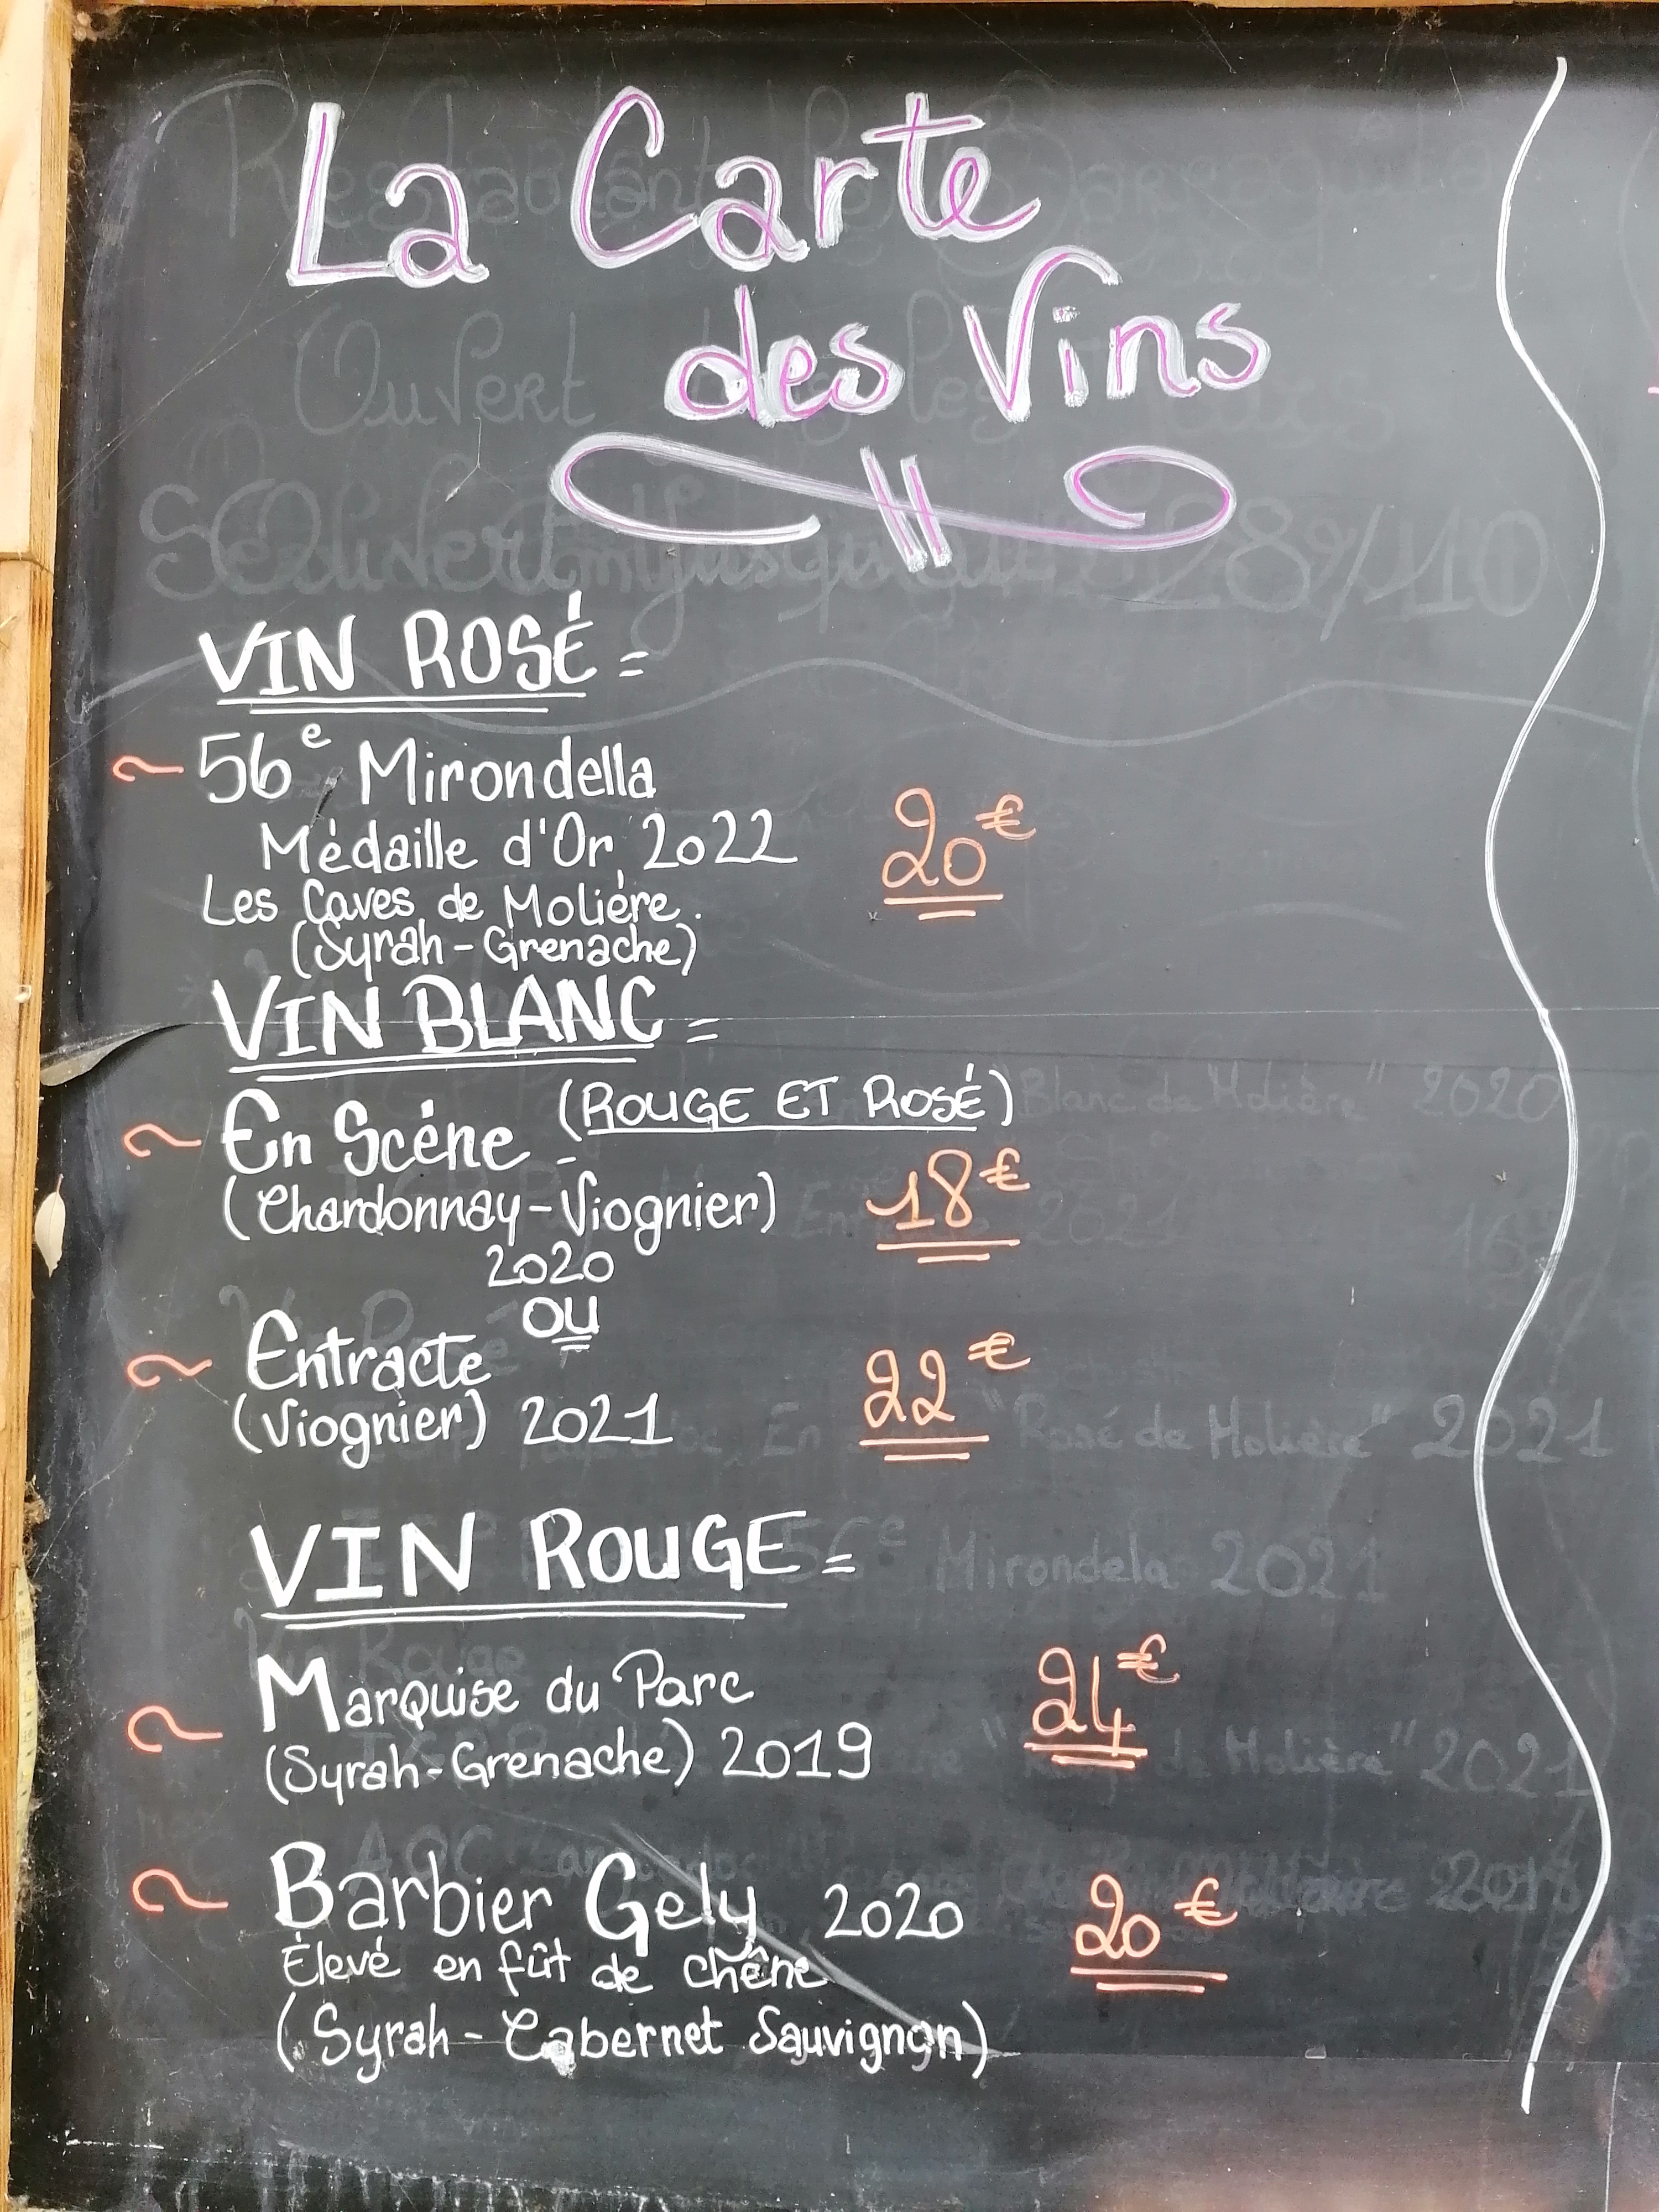 La Carte
des Vins
VIN ROSÉ =
56e Mirondella
Médaille d'Or 2022
20€
Les Caves de Molière.
(Syrah - Grenache)
VIN BLANC =
(ROUGE ET ROSÉ)
En Scène -
(Chardonnay - Viognier)
18€
2020
OU
Entracte
22€
(Viognier) 2021
VIN ROUGE =
Marquise du Parc
24€
(Syrah - Grenache) 2019
Barbier Gely 2020
20€
Élevé en fût de chêne
(Syrah - Cabernet Sauvignon)